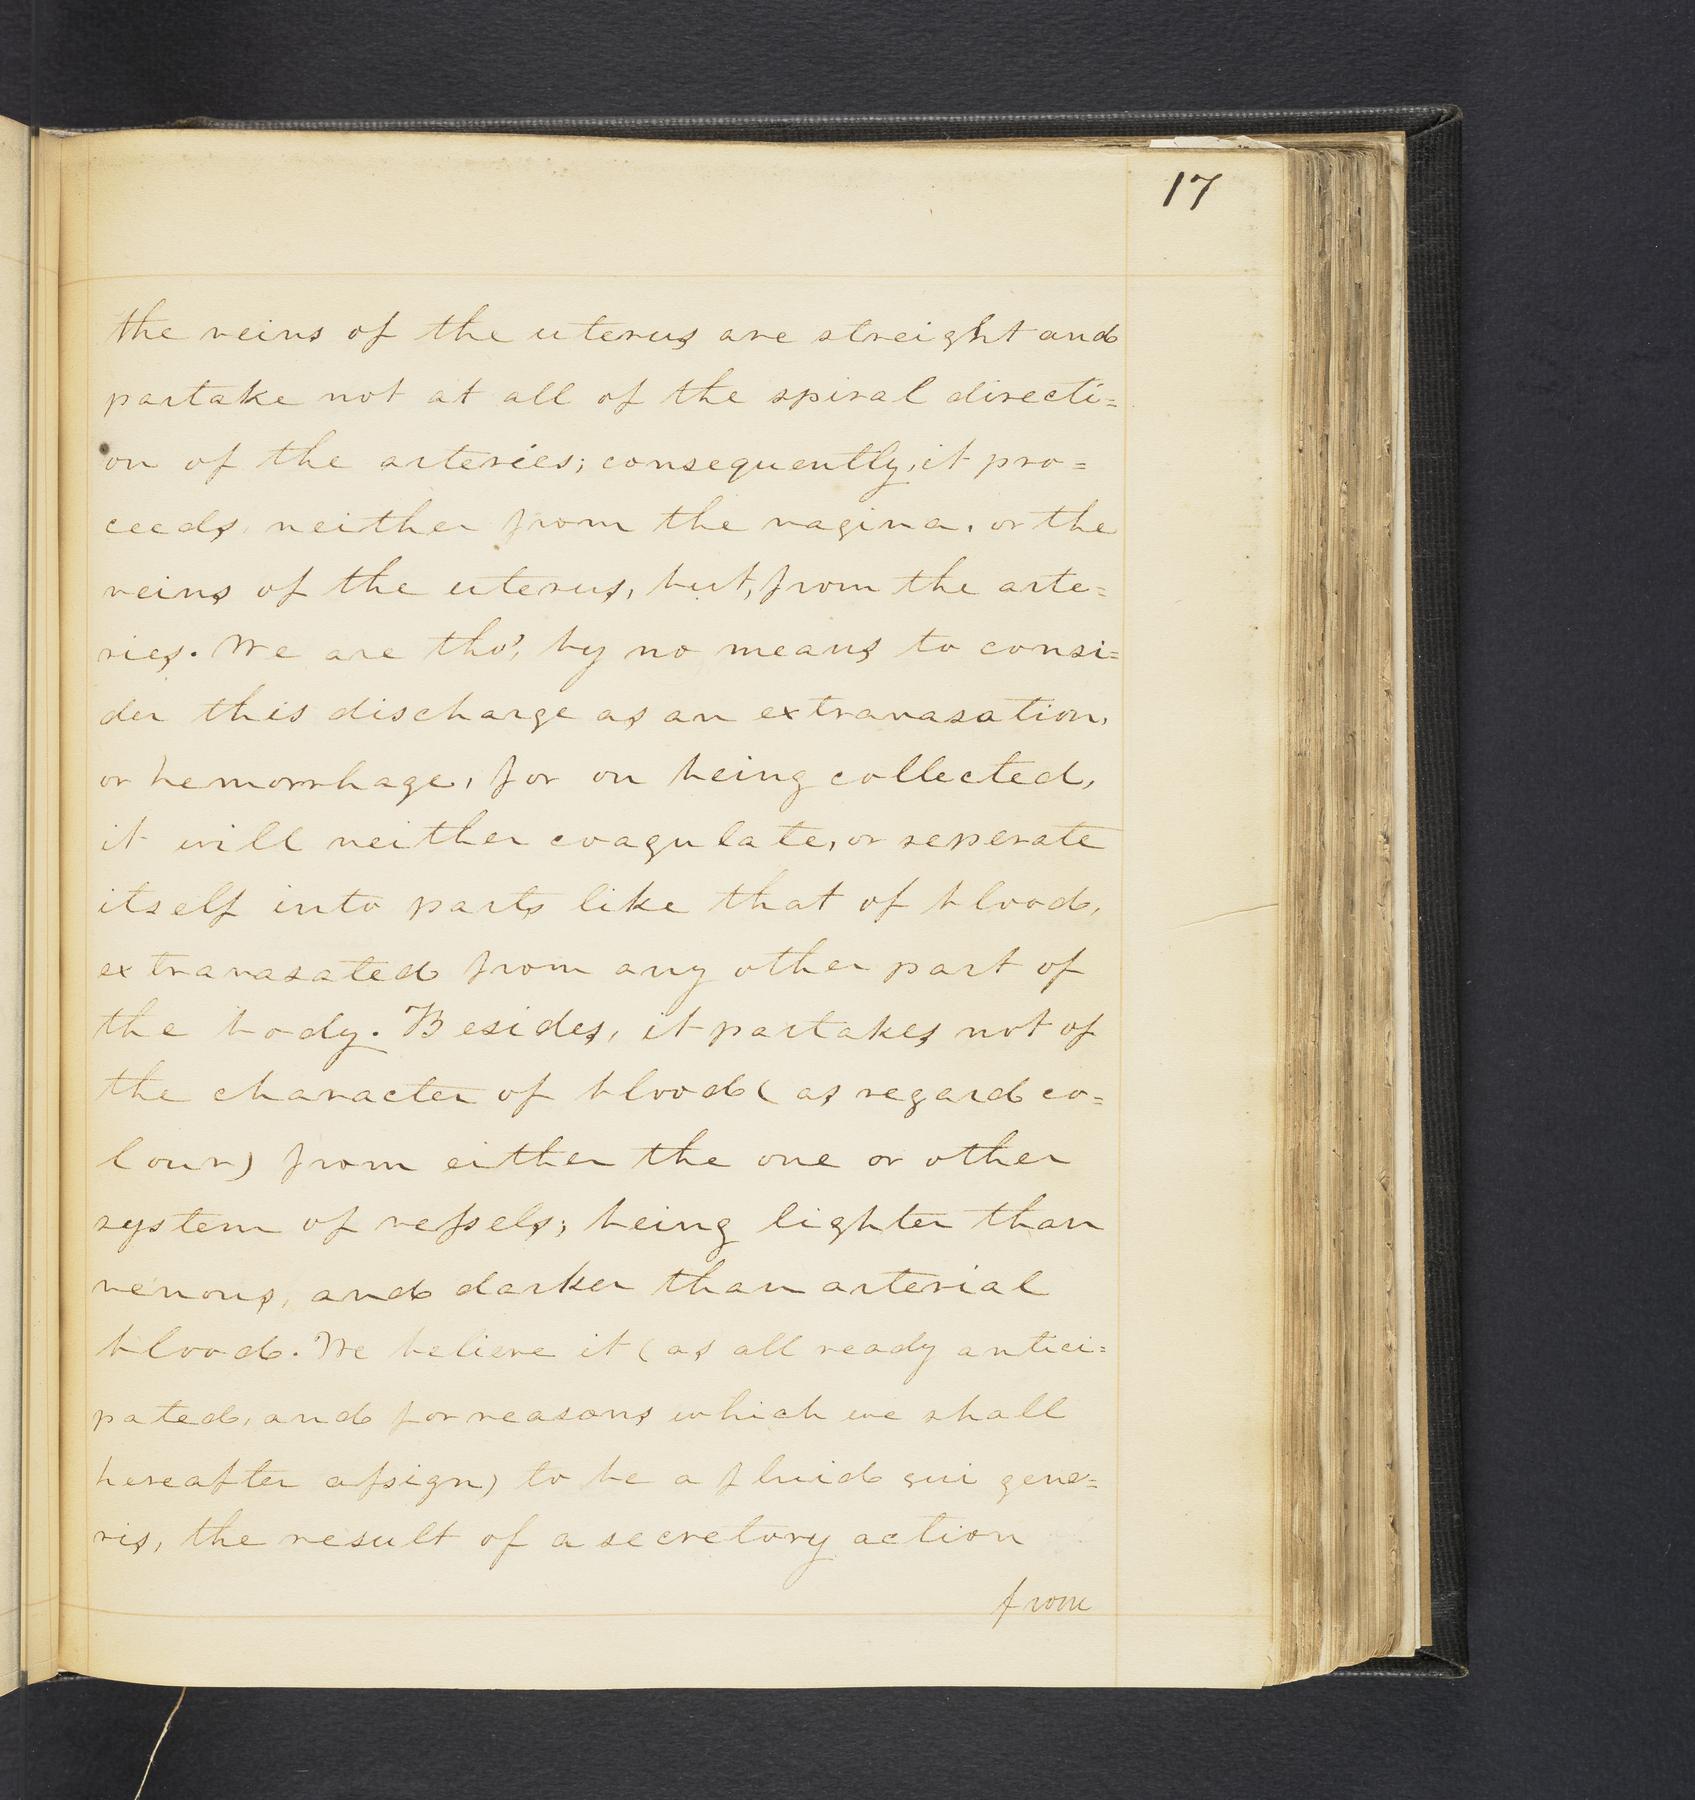 17
the veins of the uterus are streight and
partake not at all of the spiral directi=
on of the arteries; consequently, it pro=
ceeds, neither from the vagina, or the
veins of the uterus, but, from the arte=
ries. We are tho', by no means to consi=
der this discharge as an extravasation,
or hemorrhage, for on being collected,
it will neither coagulate, or seperate
itself into parts like that of blood,
extravasated from any other part of
the body. Besides, it partakes not of
the character of blood (as regard co=
lour) from either the one or other
system of veſsels; being lighter than
venous, and darker than arterial
blood. We believe it (as all ready antici=
pated, and for reasons which we shall
hereafter aſsign) to be a fluid sui gene=
ris, the result of a secretory action
from